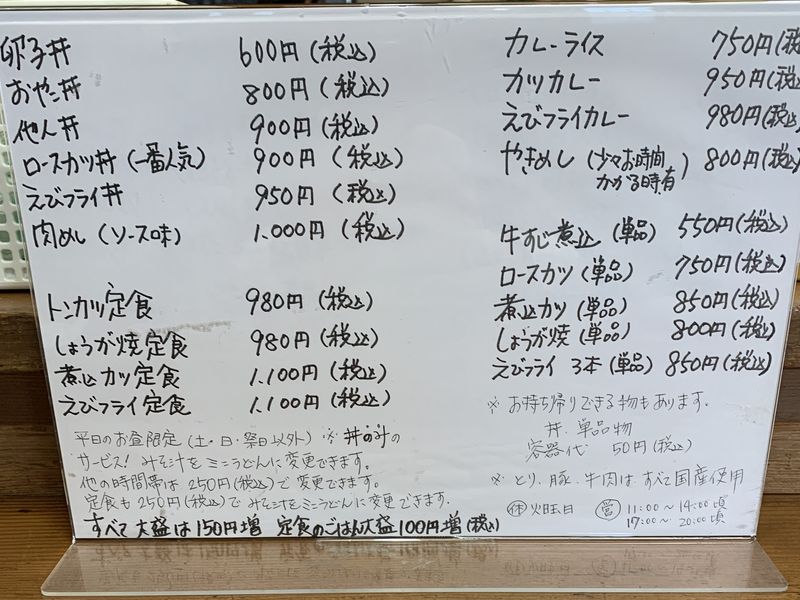 卵子丼 600円(税込)
おやこ丼 800円(税込)
他人丼 900円(税込)
ロースカツ丼(一番人気) 900円(税込)
えびフライ丼 950円(税込)
肉めし(ソース味) 1.000円(税込)
トンカツ定食 980円(税込)
しょうが焼定食 980円(税込)
煮込カツ定食 1.100円(税込)
えびフライ定食 1.100円(税込)
平日のお昼限定(土・日・祭日以外)※丼のみの
サービス!みそ汁をミニうどんに変更できます。
他の時間帯は250円(税込)で変更できます。
定食も250円(税込)でみそ汁をミニうどんに変更できます。
すべて大盛は150円増 定食のごはん大盛100円増(税込)
カレーライス 750円(税
カツカレー 950円(税込
えびフライカレー 980円(税込
やきめし(少々お時間かかる時有) 800円(税込)
牛すじ煮込(単品) 550円(税込)
ロースカツ(単品) 750円(税込)
煮込カツ(単品) 850円(税込)
しょうが焼(単品) 800円(税込)
えびフライ3本(単品) 850円(税込)
※お持ち帰りできる物もあります。
丼、単品物
容器代 50円(税込)
※とり、豚、牛肉は、すべて国産使用
休 火曜日 営 11:00〜14:00頃
17:00〜20:00頃